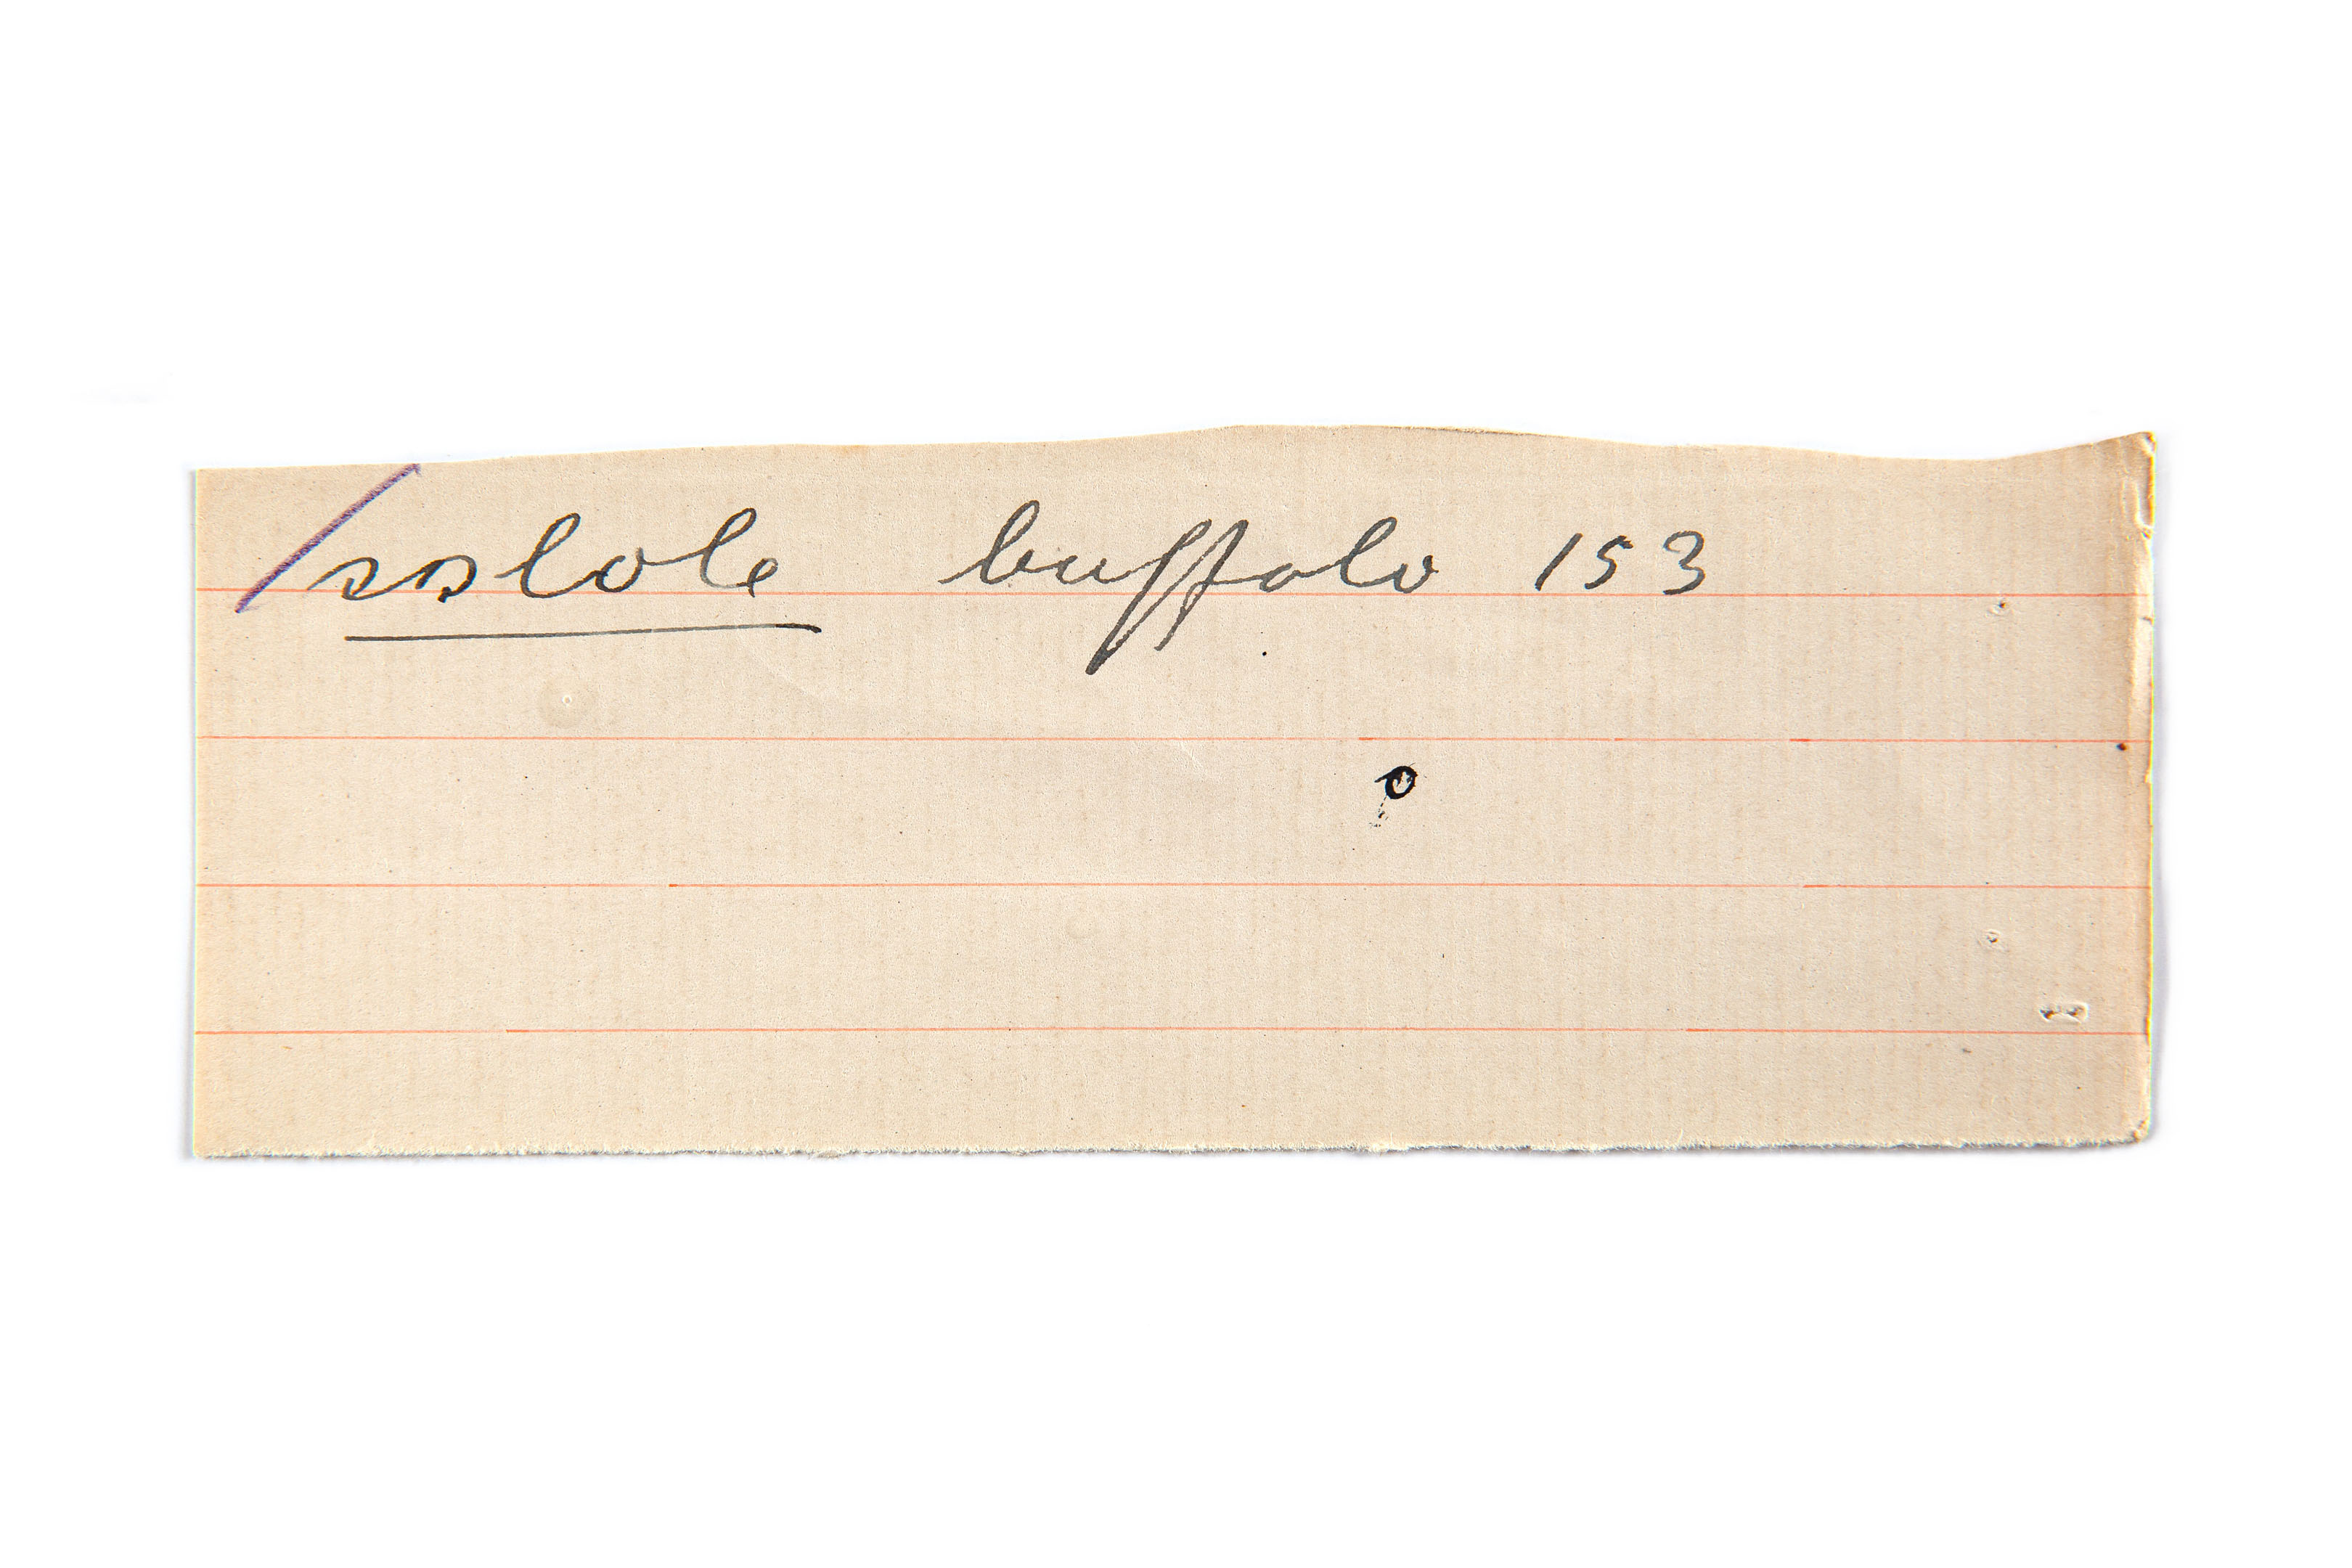 sslole buffalo 153